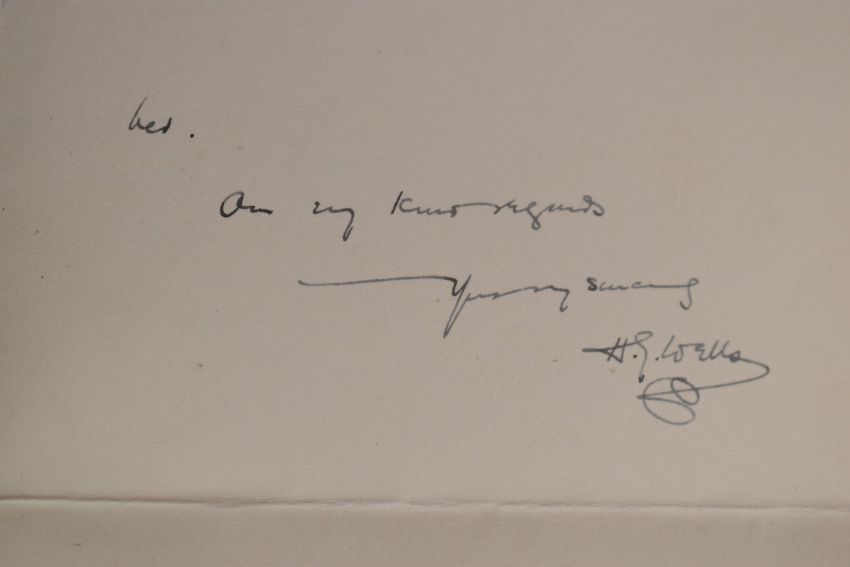 her.
Our my kind regards
Yours very sincerely
H.G. Wells